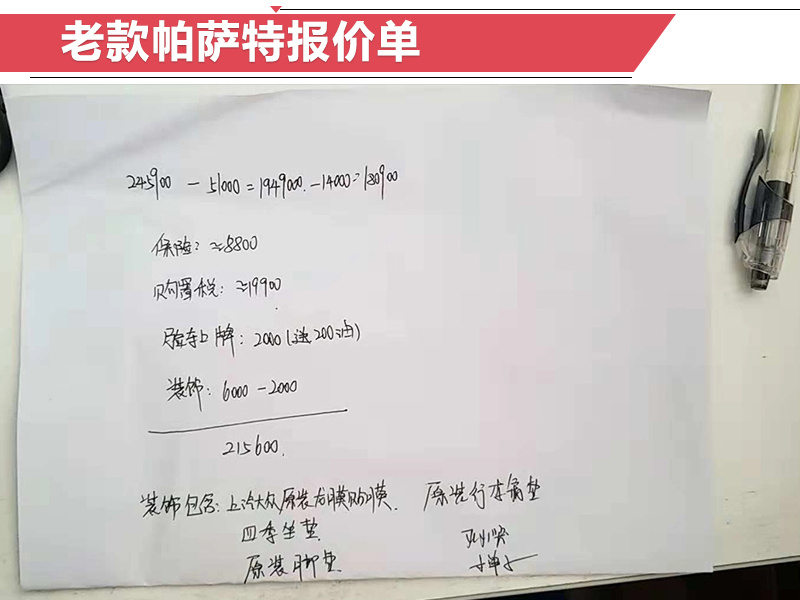 老款帕萨特报价单
245900 - 51000 = 1949000. - 14000 = 180900
保险: ≈8800
购置税: ≈19900
验车上牌: 2000 (送200油)
装饰: 6000 - 2000
215600.
装饰包含: 上汽大众原装龙膜贴膜. 原装行李箱垫
四季坐垫
原装脚垫